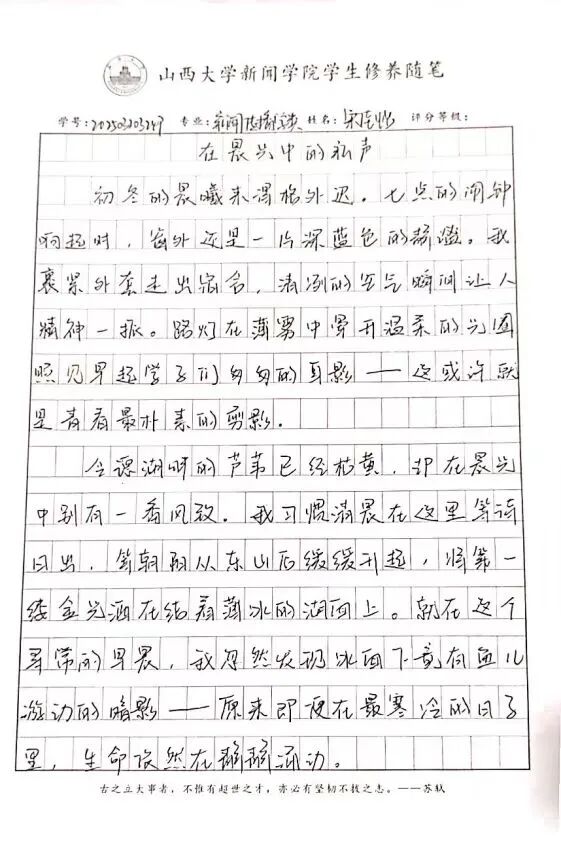 山西大学新闻学院学生修养随笔
学号: 专业:新闻 姓名:宋 评分等级:
在晨光中的私声
初冬的晨曦来得格外迟。七点的闹钟
响起时，窗外还是一片深蓝色的静谧。我
裹紧外套走出宿舍，清冽的空气瞬间让人
精神一振。路灯在薄雾中晕开温柔的光圈
照见早起学子们匆匆的身影——这或许就
是青春最朴素的剪影。
令德湖畔的芦苇已经枯黄，却在晨光
中别有一番风致。我习惯清晨在这里等待
日出，等朝阳从东山后缓缓升起，将第一
缕金光洒在结着薄冰的湖面上。就在这个
寻常的早晨，我忽然发现冰面下竟有鱼儿
游动的暗影——原来即便在最寒冷的日子
里，生命依然在静静涌动。
古之立大事者，不惟有超世之才，亦必有坚韧不拔之志。——苏轼